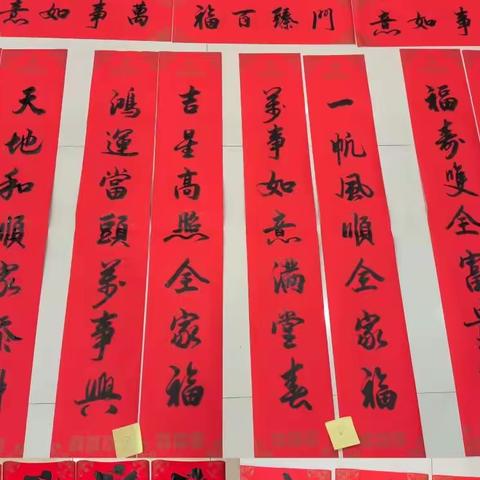 事如意
門臻百福
萬事如意
福寿雙全富
一帆風順全家福
萬事如意滿堂春
吉星高照全家福
鴻運當頭萬事興
天地和順家添